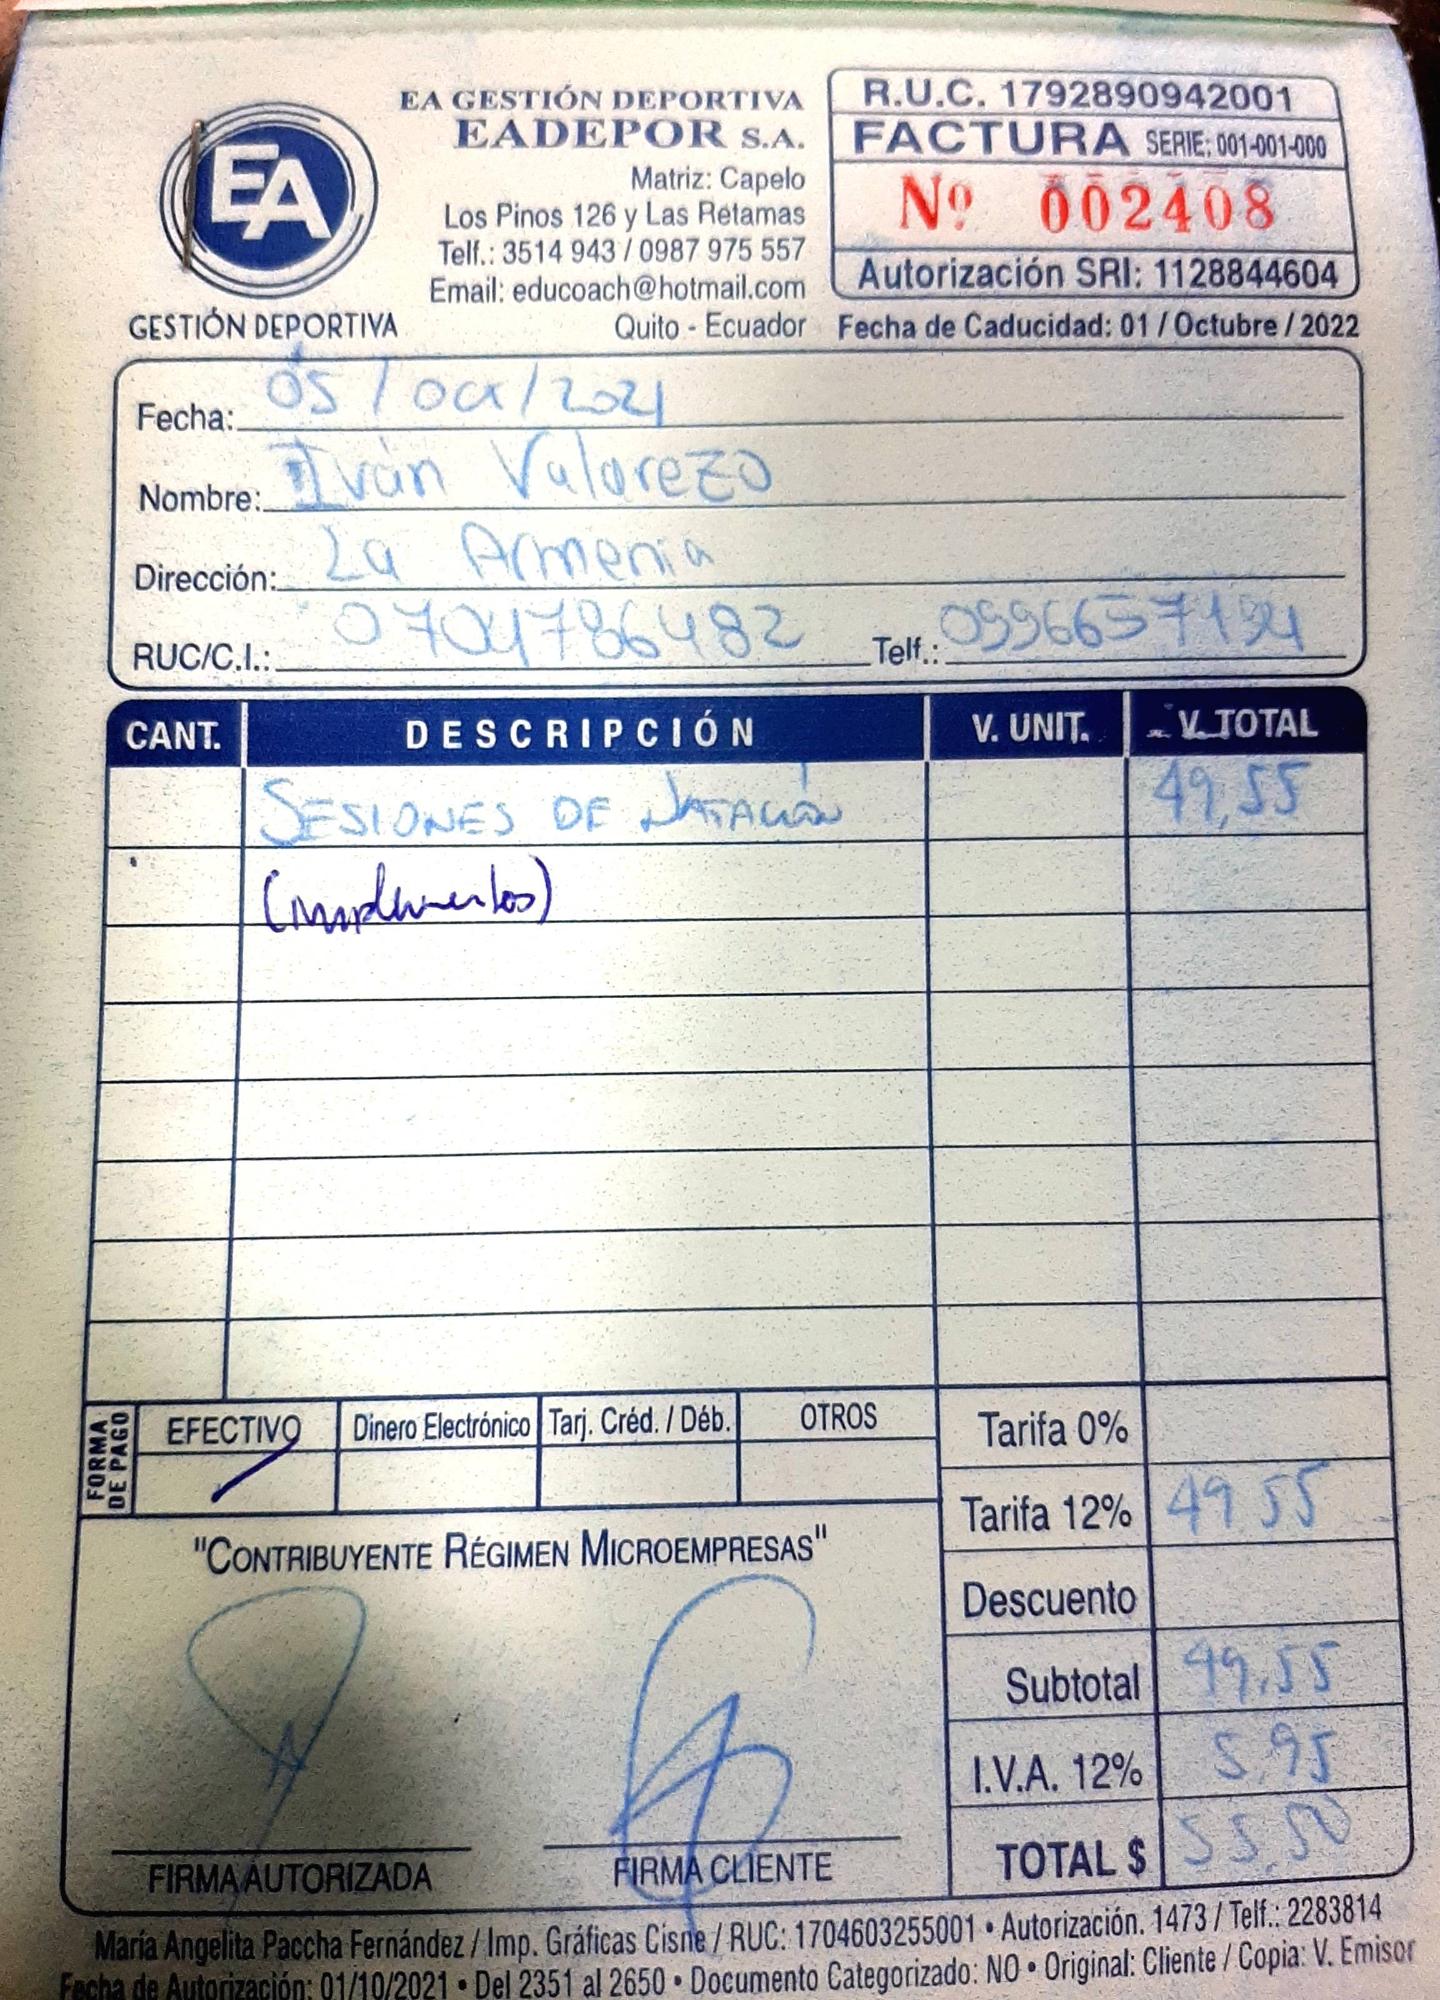 EA
GESTIÓN DEPORTIVA
EA GESTIÓN DEPORTIVA
EADEPOR S.A.
Matriz: Capelo
Los Pinos 126 y Las Retamas
Telf.: 3514 943 / 0987 975 557
Email: educoach@hotmail.com
Quito - Ecuador
R.U.C. 1792890942001
FACTURA SERIE: 001-001-000
Nº 002408
Autorización SRI: 1128844604
Fecha de Caducidad: 01 / Octubre / 2022
Fecha: 05 / Oct / 2021
Nombre: Iván Valarezo
Dirección: La Armenia
RUC/C.I.: 0704786482 Telf.:
CANT. DESCRIPCIÓN V. UNIT. V. TOTAL
SESIONES DE NATACIÓN 49,55
(implementos)
FORMA DE PAGO
EFECTIVO Dinero Electrónico Tarj. Créd. / Déb. OTROS
Tarifa 0%
Tarifa 12% 49 55
Descuento
Subtotal 49,55
I.V.A. 12% 5,95
TOTAL $ 55,50
"CONTRIBUYENTE RÉGIMEN MICROEMPRESAS"
FIRMA AUTORIZADA FIRMA CLIENTE
María Angelita Paccha Fernández / Imp. Gráficas Cisne / RUC: 1704603255001 • Autorización. 1473 / Telf.: 2283814
Fecha de Autorización: 01/10/2021 • Del 2351 al 2650 • Documento Categorizado: NO • Original: Cliente / Copia: V. Emisor